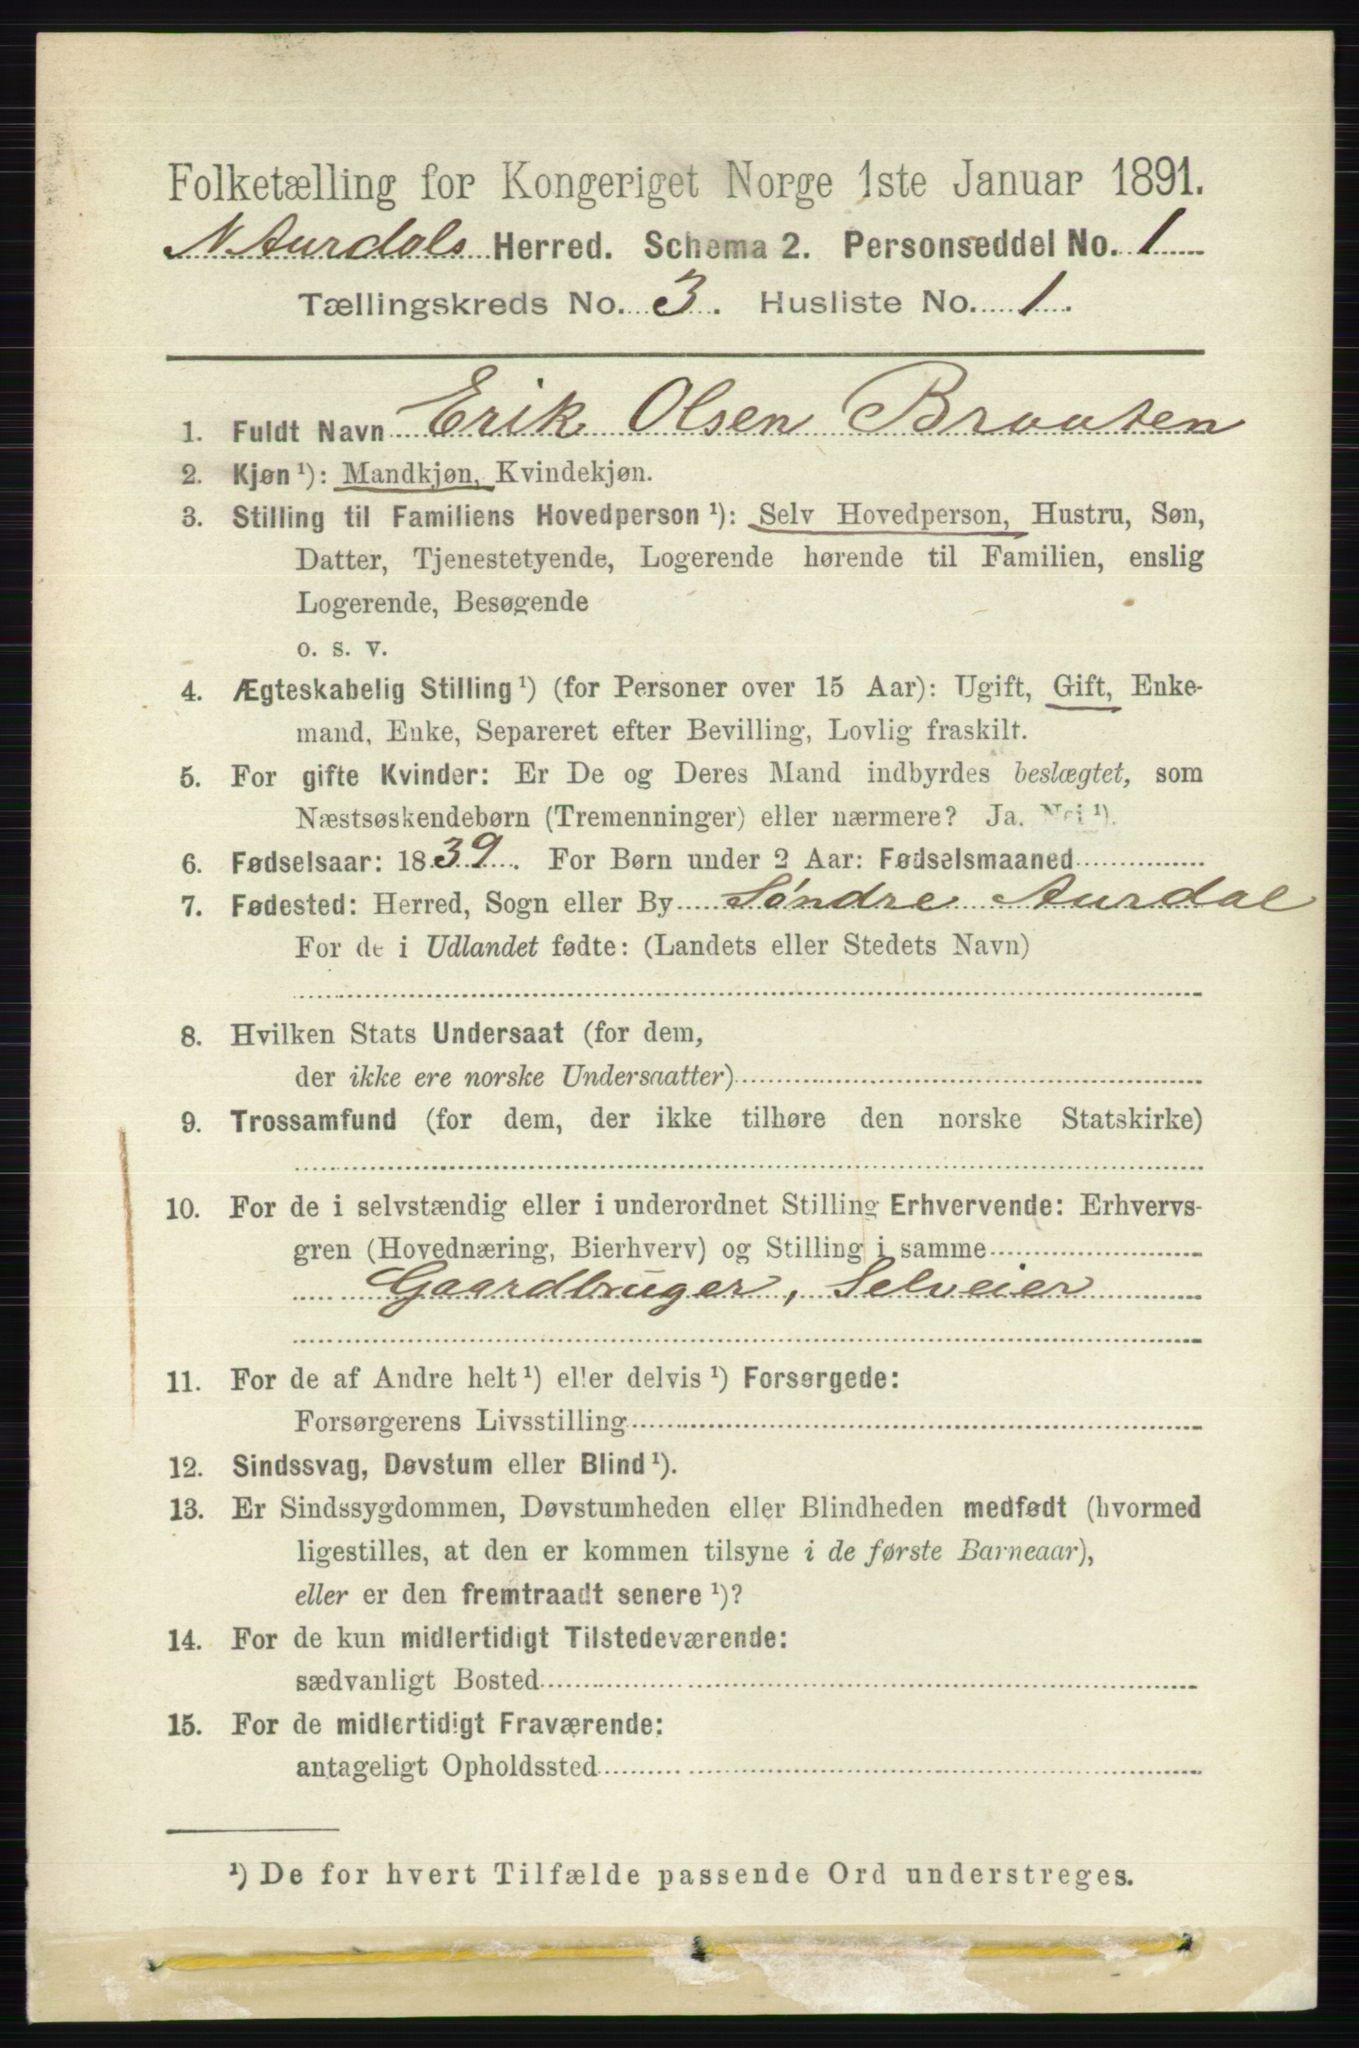 Folketælling for Kongeriget Norge 1ste Januar 1891.
N Aurdals Herred. Schema 2. Personseddel No. 1
Tællingskreds No. 3. Husliste No. 1.
1. Fuldt Navn Erik Olsen Braaten
2. Kjøn ¹): Mandkjøn, Kvindekjøn.
3. Stilling til Familiens Hovedperson ¹): Selv Hovedperson, Hustru, Søn,
Datter, Tjenestetyende, Logerende hørende til Familien, enslig
Logerende, Besøgende
o. s. v.
4. Ægteskabelig Stilling ¹) (for Personer over 15 Aar): Ugift, Gift, Enke-
mand, Enke, Separeret efter Bevilling, Lovlig fraskilt.
5. For gifte Kvinder: Er De og Deres Mand indbyrdes beslægtet, som
Næstsøskendebørn (Tremenninger) eller nærmere? Ja. Nei ¹).
6. Fødselsaar: 1839. For Børn under 2 Aar: Fødselsmaaned
7. Fødested: Herred, Sogn eller By Søndre Aurdal
For de i Udlandet fødte: (Landets eller Stedets Navn)
8. Hvilken Stats Undersaat (for dem,
der ikke ere norske Undersaatter)
9. Trossamfund (for dem, der ikke tilhøre den norske Statskirke)
10. For de i selvstændig eller i underordnet Stilling Erhvervende: Erhvervs-
gren (Hovednæring, Bierhverv) og Stilling i samme
Gaardbruger, Selveier
11. For de af Andre helt ¹) eller delvis ¹) Forsørgede:
Forsørgerens Livsstilling
12. Sindssvag, Døvstum eller Blind ¹).
13. Er Sindssygdommen, Døvstumheden eller Blindheden medfødt (hvormed
ligestilles, at den er kommen tilsyne i de første Barneaar),
eller er den fremtraadt senere ¹)?
14. For de kun midlertidigt Tilstedeværende:
sædvanligt Bosted
15. For de midlertidigt Fraværende:
antageligt Opholdssted
¹) De for hvert Tilfælde passende Ord understreges.